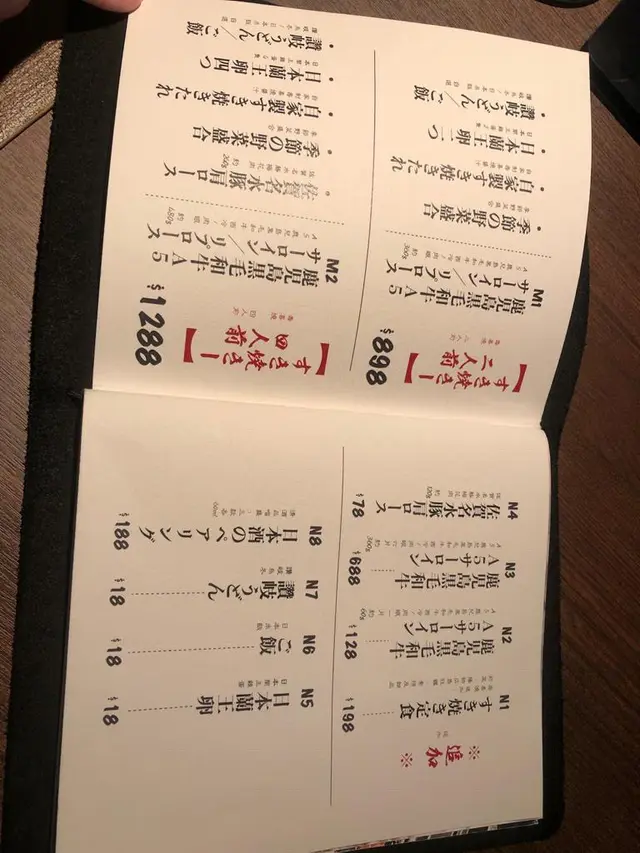 【すき焼きー二人前】
壽喜燒 二人份
$898
M1
鹿児島黒毛和牛A5
サーロイン/リブロース
300g
・季節の野菜盛合
・自家製すき焼きたれ
・日本蘭王卵一つ
・讃岐うどん/ご飯
【すき焼きー四人前】
壽喜燒 四人份
$1288
M2
鹿児島黒毛和牛A5
サーロイン/リブロース
480g
佐賀名水豚肩ロース
200g
・季節の野菜盛合
・自家製すき焼きたれ
・日本蘭王卵四つ
・讃岐うどん/ご飯
※追加※
追加
N1
すき焼き定食
$198
N2
鹿児島黒毛和牛
A5サーロイン
60g
$128
N3
鹿児島黒毛和牛
A5サーロイン
300g
$688
N4
佐賀名水豚肩ロース
120g
$78
N5
日本蘭王卵
$18
N6
ご飯
$18
N7
讃岐うどん
$18
N8
日本の酒のペアリング
60ml
$188